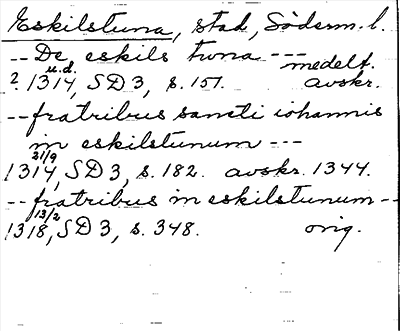 Eskilstuna, stad, Söderm. l.
-- De eskils tuna --- medelt.
u.d.
? 1314, SD 3, s. 151. avskr.
-- fratribus sancti iohannis
in eskilstunum ---
21/9
1314, SD 3, s. 182. avskr. 1344.
-- fratribus in eskilstunum --
13/2
1318, SD 3, s. 348. orig.